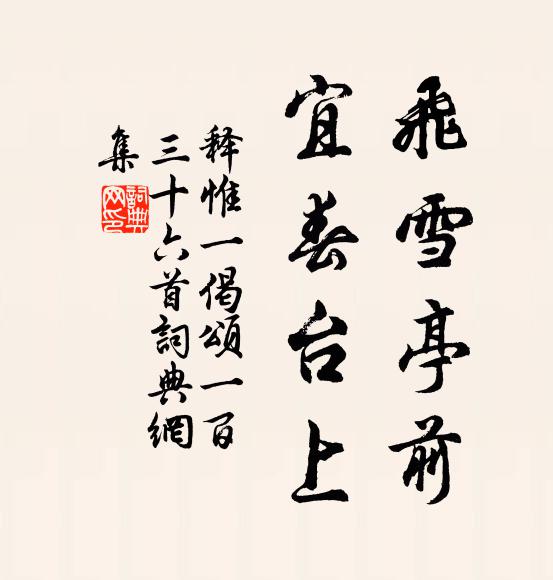 飛雪亭前
宜春台上
释惟一偈頌一百
三十六首詞典網
集
詞典
网印